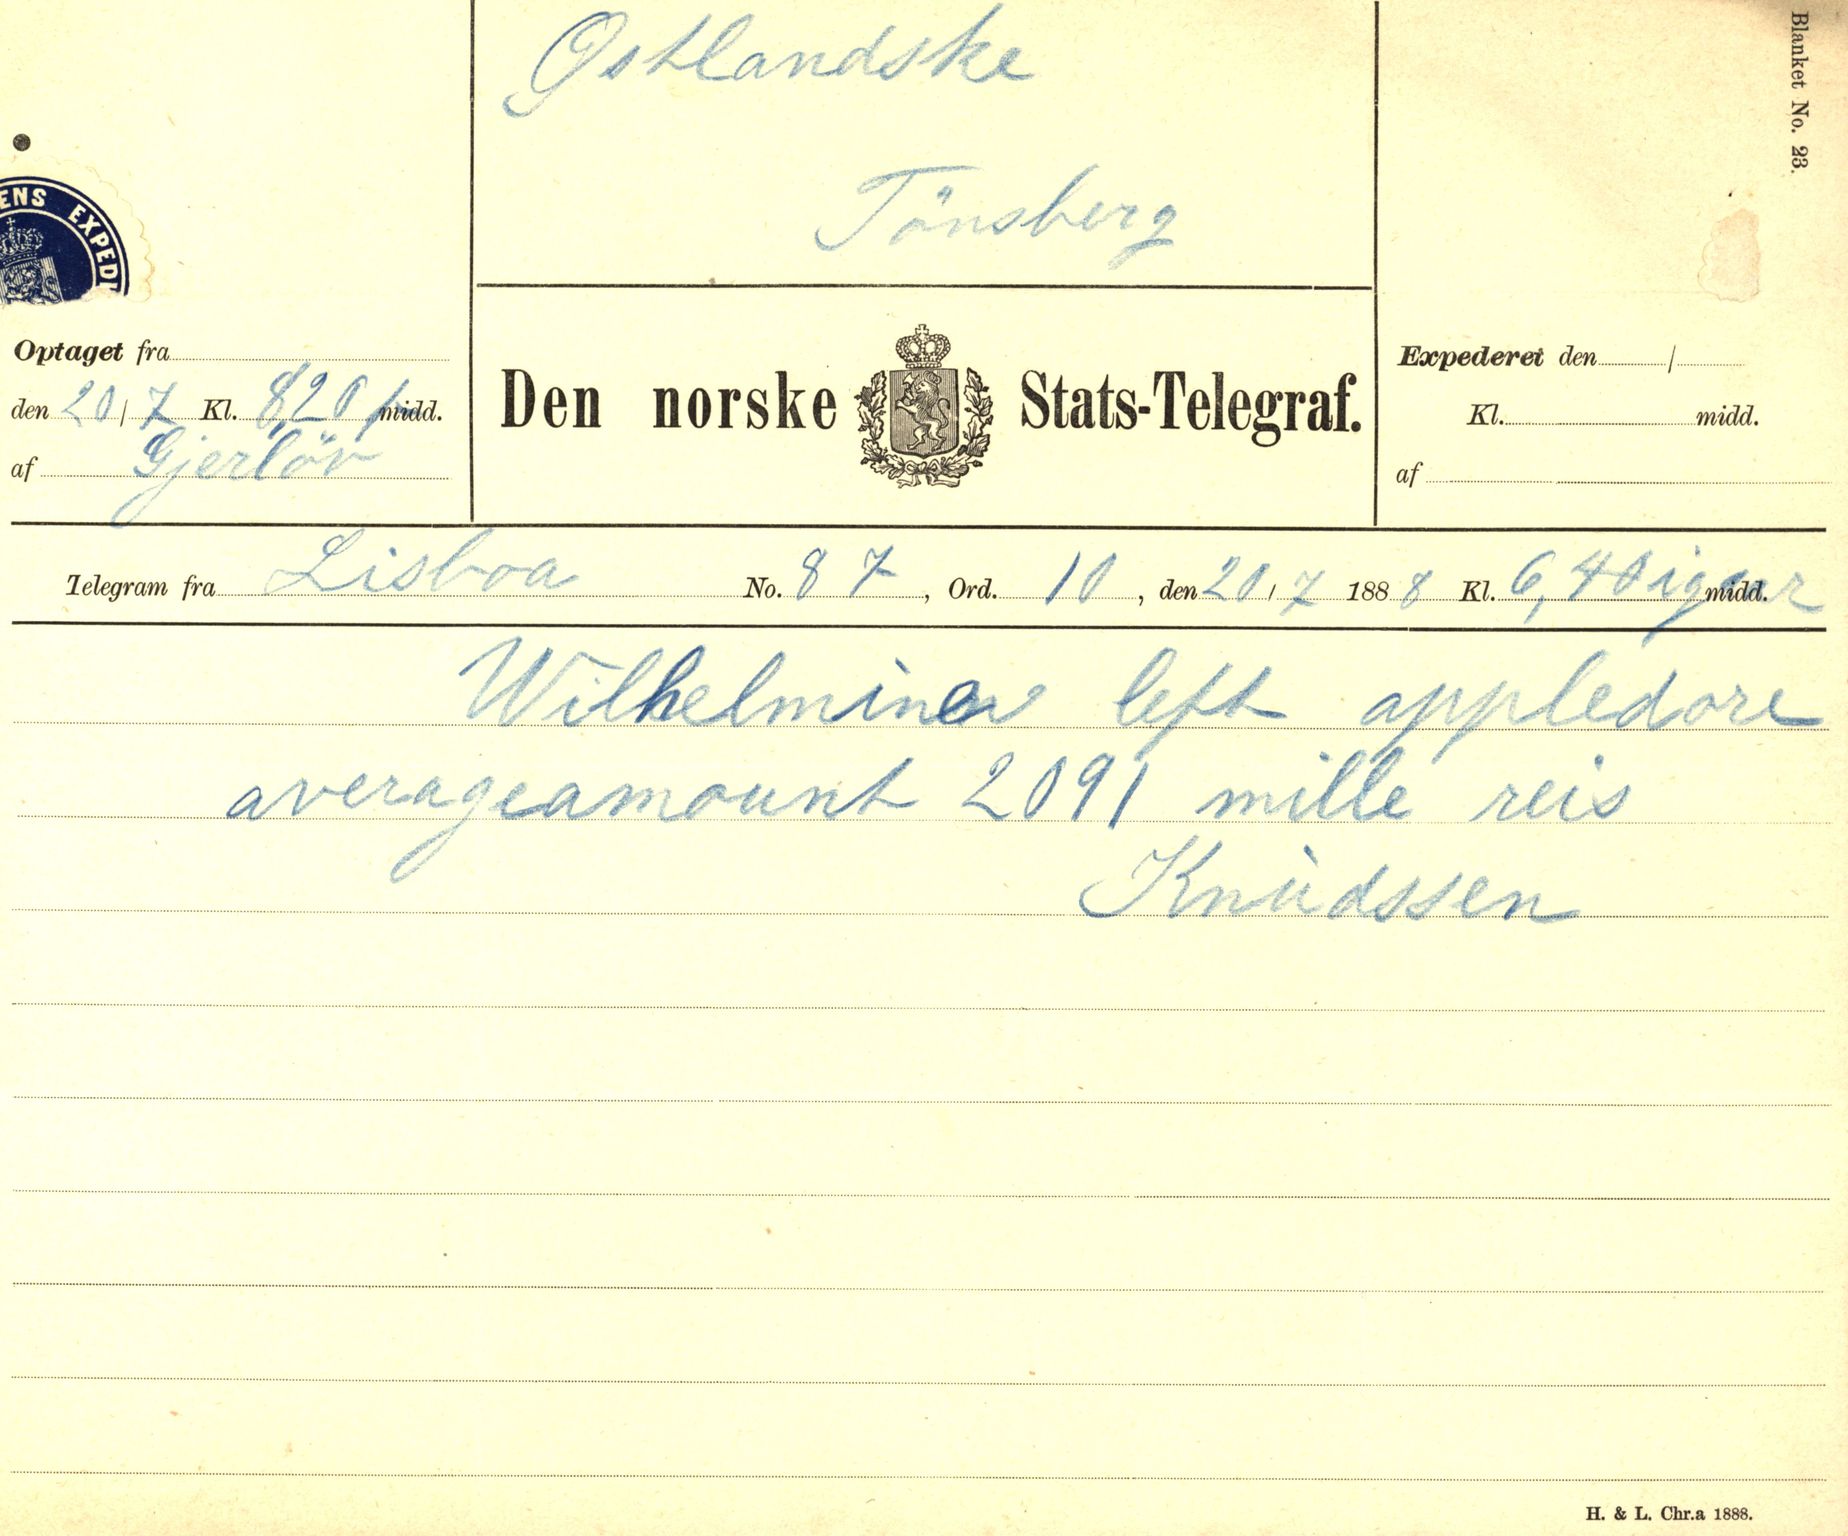 Ostlandske
Tönsberg
Blanket No. 23.
ENS EXPEDI
Optaget fra
den 20/7 Kl. 8,20 p midd.
af Gjerlöv
Den norske Stats-Telegraf.
Expederet den /
Kl. midd.
af
Telegram fra Lisboa No. 87, Ord. 10, den 20/7 1888 Kl. 6,40 midd.
Wilhelmine left appledore
averageamount 2091 mille reis
Knudssen
H. & L. Chr.a 1888.